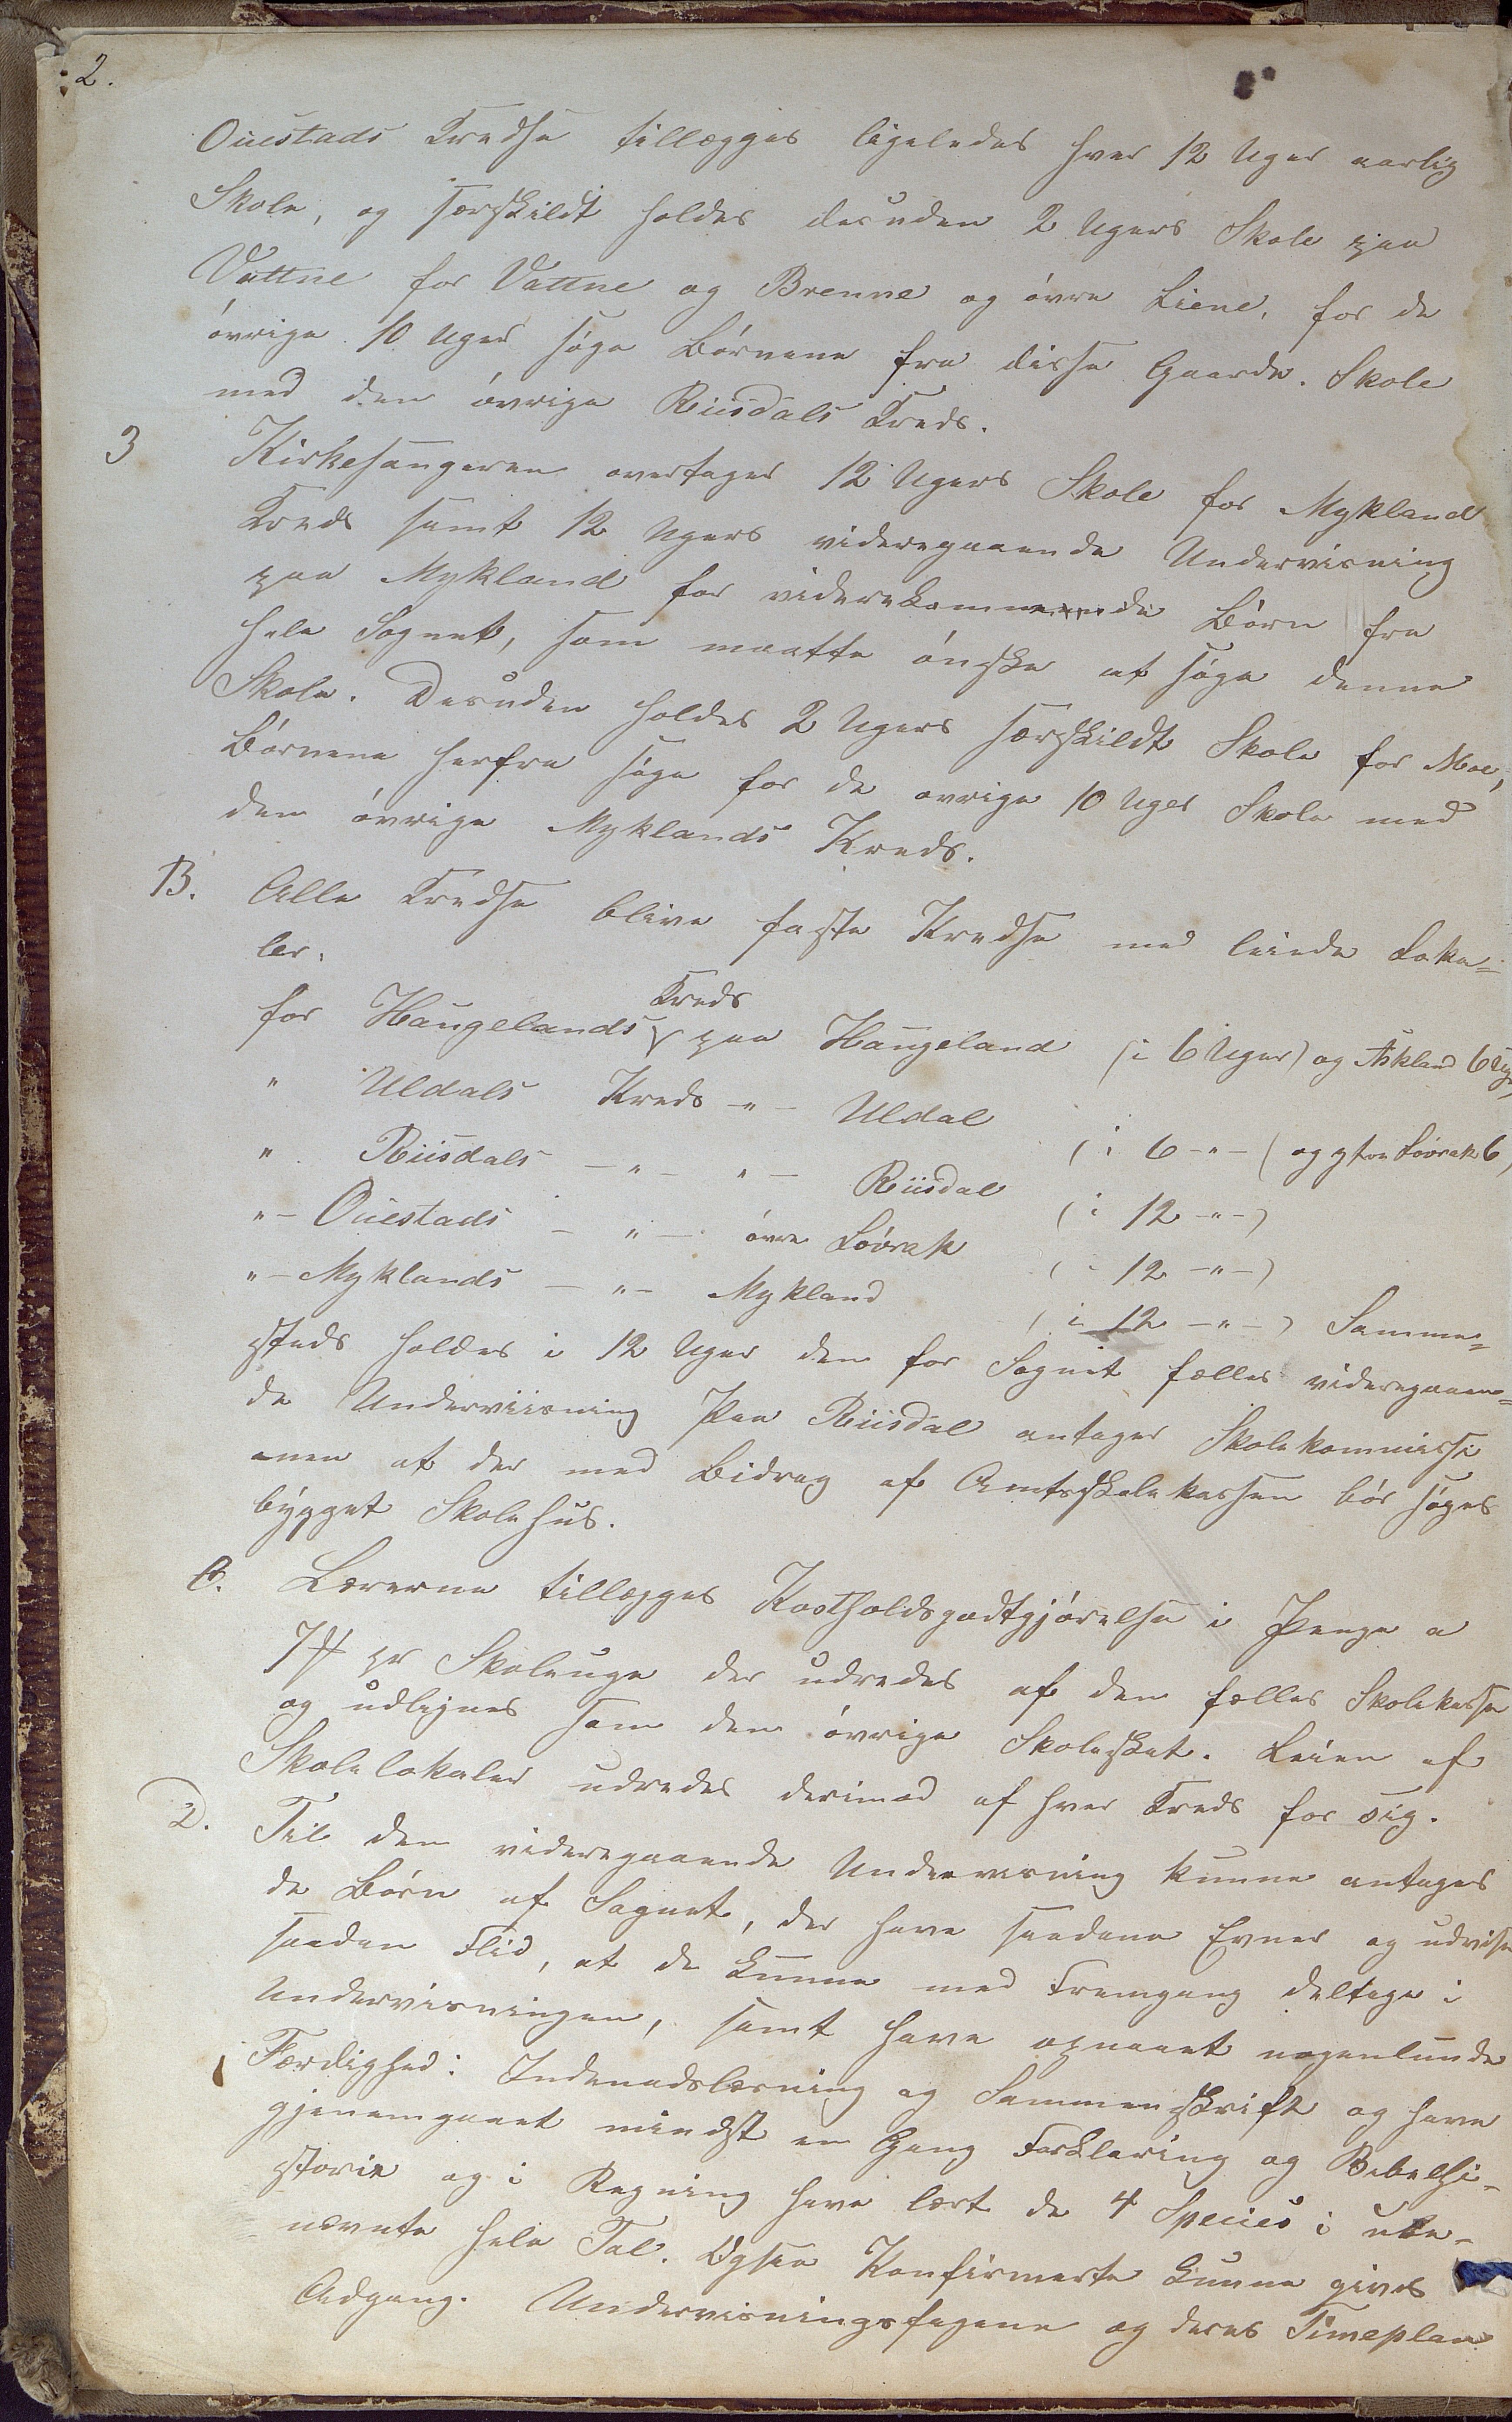 2.
Ouestads Kredse tillægges ligeledes hver 12 Uger aarlig
Skole, og særskildt holdes desuden 2 Ugers Skole paa
Vattne for Vattne og Brenne og óvre Liene, for de
óvrige 10 Uger søge Børnene fra disse Gaarde. Skole
med den óvrige Riisdals Kreds.
3 Kirkesangeren overtager 12 Ugers Skole for Mykland
Kreds samt 12 Ugers videregaaende Undervisning
paa Mykland for viderekommende Børn fra
hele Sognet, som maatte ónske at søge denne
Skole. Desuden holdes 2 Ugers særskildt Skole for Moe,
Børnene herfra søge for de ovrige 10 Uger Skole med
den óvrige Myklands Kreds.
B. Alle Kredse blive faste Kredse med leiede Loka=
ler.
for Haugelands Kreds paa Haugeland (i 6 Uger) og Askland 6 Ug,
" Uldals Kreds -"- Uldal (i 6 -"- (og ytre Løvrak 6,
" Riisdals -"- "- Riisdal (i 12 -"-)
"- Ouestads - "- óvre Løvrak (- 12 -"-)
"- Myklands - "- Mykland (i 12 -"-) Samme=
steds holdes i 12 Uger den for Sognet fælles videregaaen=
de Underviisning Paa Riisdal antager Skolekommissi
onen at der med Bidrag af Amtsskolekassen bór søges
bygget Skolehus.
C. Lærerne tillægges Kostholdsgodtgjørelse i Penge a
7 ß pr Skoleuge der udredes af den fælles Skolekasse
og udlignes som den óvrige Skoleskat. Leien af
Skolelokaler udredes derimod af hver Kreds for sig.
D. Til den videregaaende Undervisning kunne antages
de Børn af Sognet, der have saadane Evner og udvise
saadan Flid, at de kunne med Fremgang deltage i
Undervisningen, samt have opnaaet nogenlunde
Færdighed i Indenadslæsning og Sammenskrift og have
gjenemgaaet mindst en Gang Forklaring og Bibelhi-
storie og i Regning have lært de 4 Species i ube-
nævnte hele Tal. Ogsaa Konfirmerte kunne gives
Adgang. Undervisningsfagene og deres Timeplan